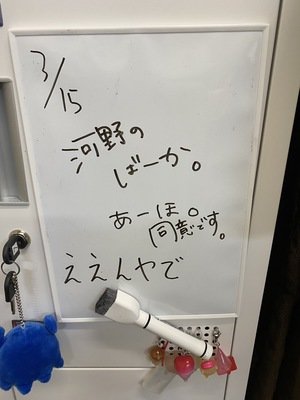 3/15
河野の
ばーか。
あーほ。
同意です。
ええんやで